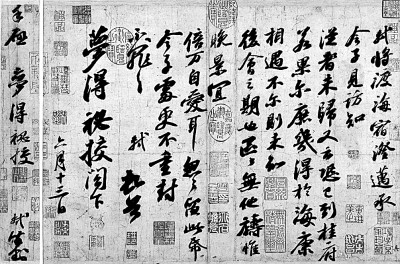 軾將渡海宿澄邁承
令子見訪知
從者未歸又云恐已到桂府
若果爾庶幾得於海康
相遇不爾則未知
後會之期也區區無他禱惟
晚景宜
倍萬自愛耳匆匆留此帋
令子處更不重封
不罪不罪 軾 頓首
夢得秘校閣下
六月十三日
手啟 夢得秘校 軾封